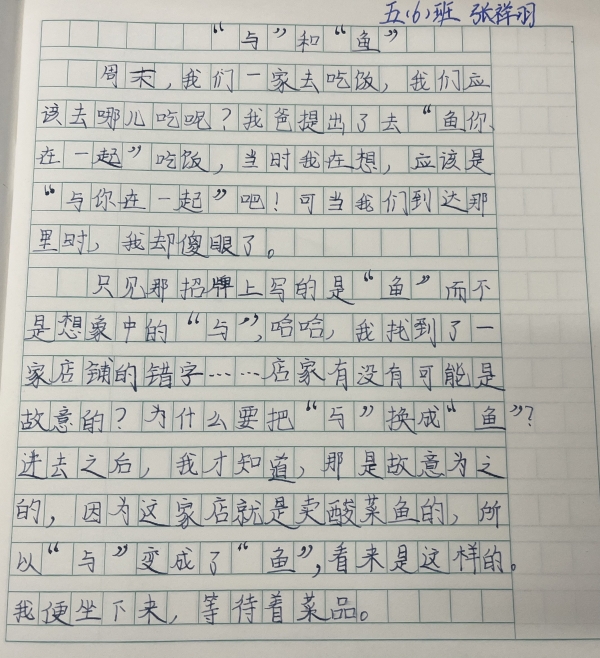 五(6)班 张祥羽
“与”和“鱼”
周末,我们一家去吃饭,我们应
该去哪儿吃呢?我爸提出了去“鱼你
在一起”吃饭,当时我在想,应该是
“与你在一起”吧!可当我们到达那
里时,我却傻眼了。
只见那招牌上写的是“鱼”而不
是想象中的“与”,哈哈,我找到了一
家店铺的错字……店家有没有可能是
故意的?为什么要把“与”换成“鱼”?
进去之后,我才知道,那是故意为之
的,因为这家店就是卖酸菜鱼的,所
以“与”变成了“鱼”,看来是这样的。
我便坐下来,等待着菜品。